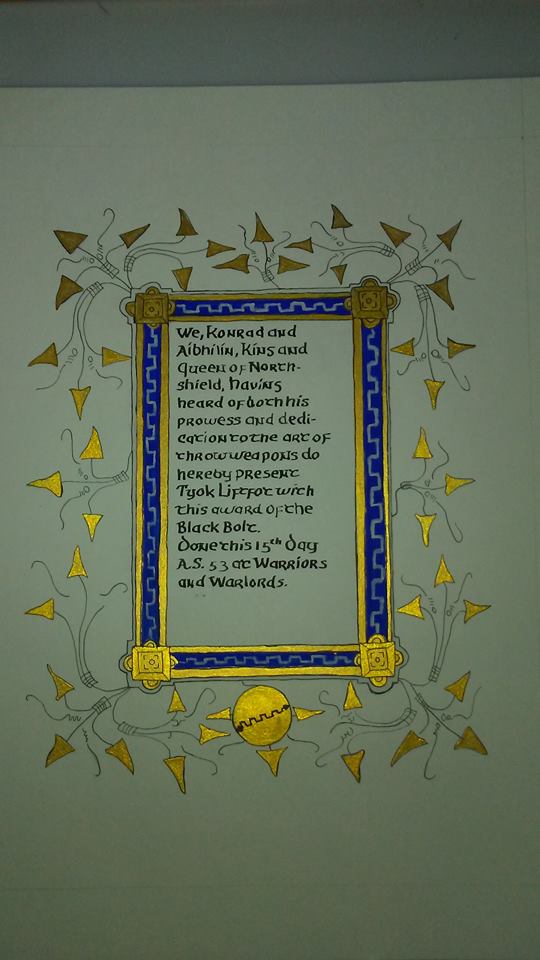 We, Konrad and
Aibhilín, King and
Queen of North-
shield, having
heard of both his
prowess and dedi-
cation to the art of
throw weapons do
hereby present
Tyok Liftfot with
this award of the
Black Bolt.
Done this 15th Day
A.S. 53 at Warriors
and Warlords.